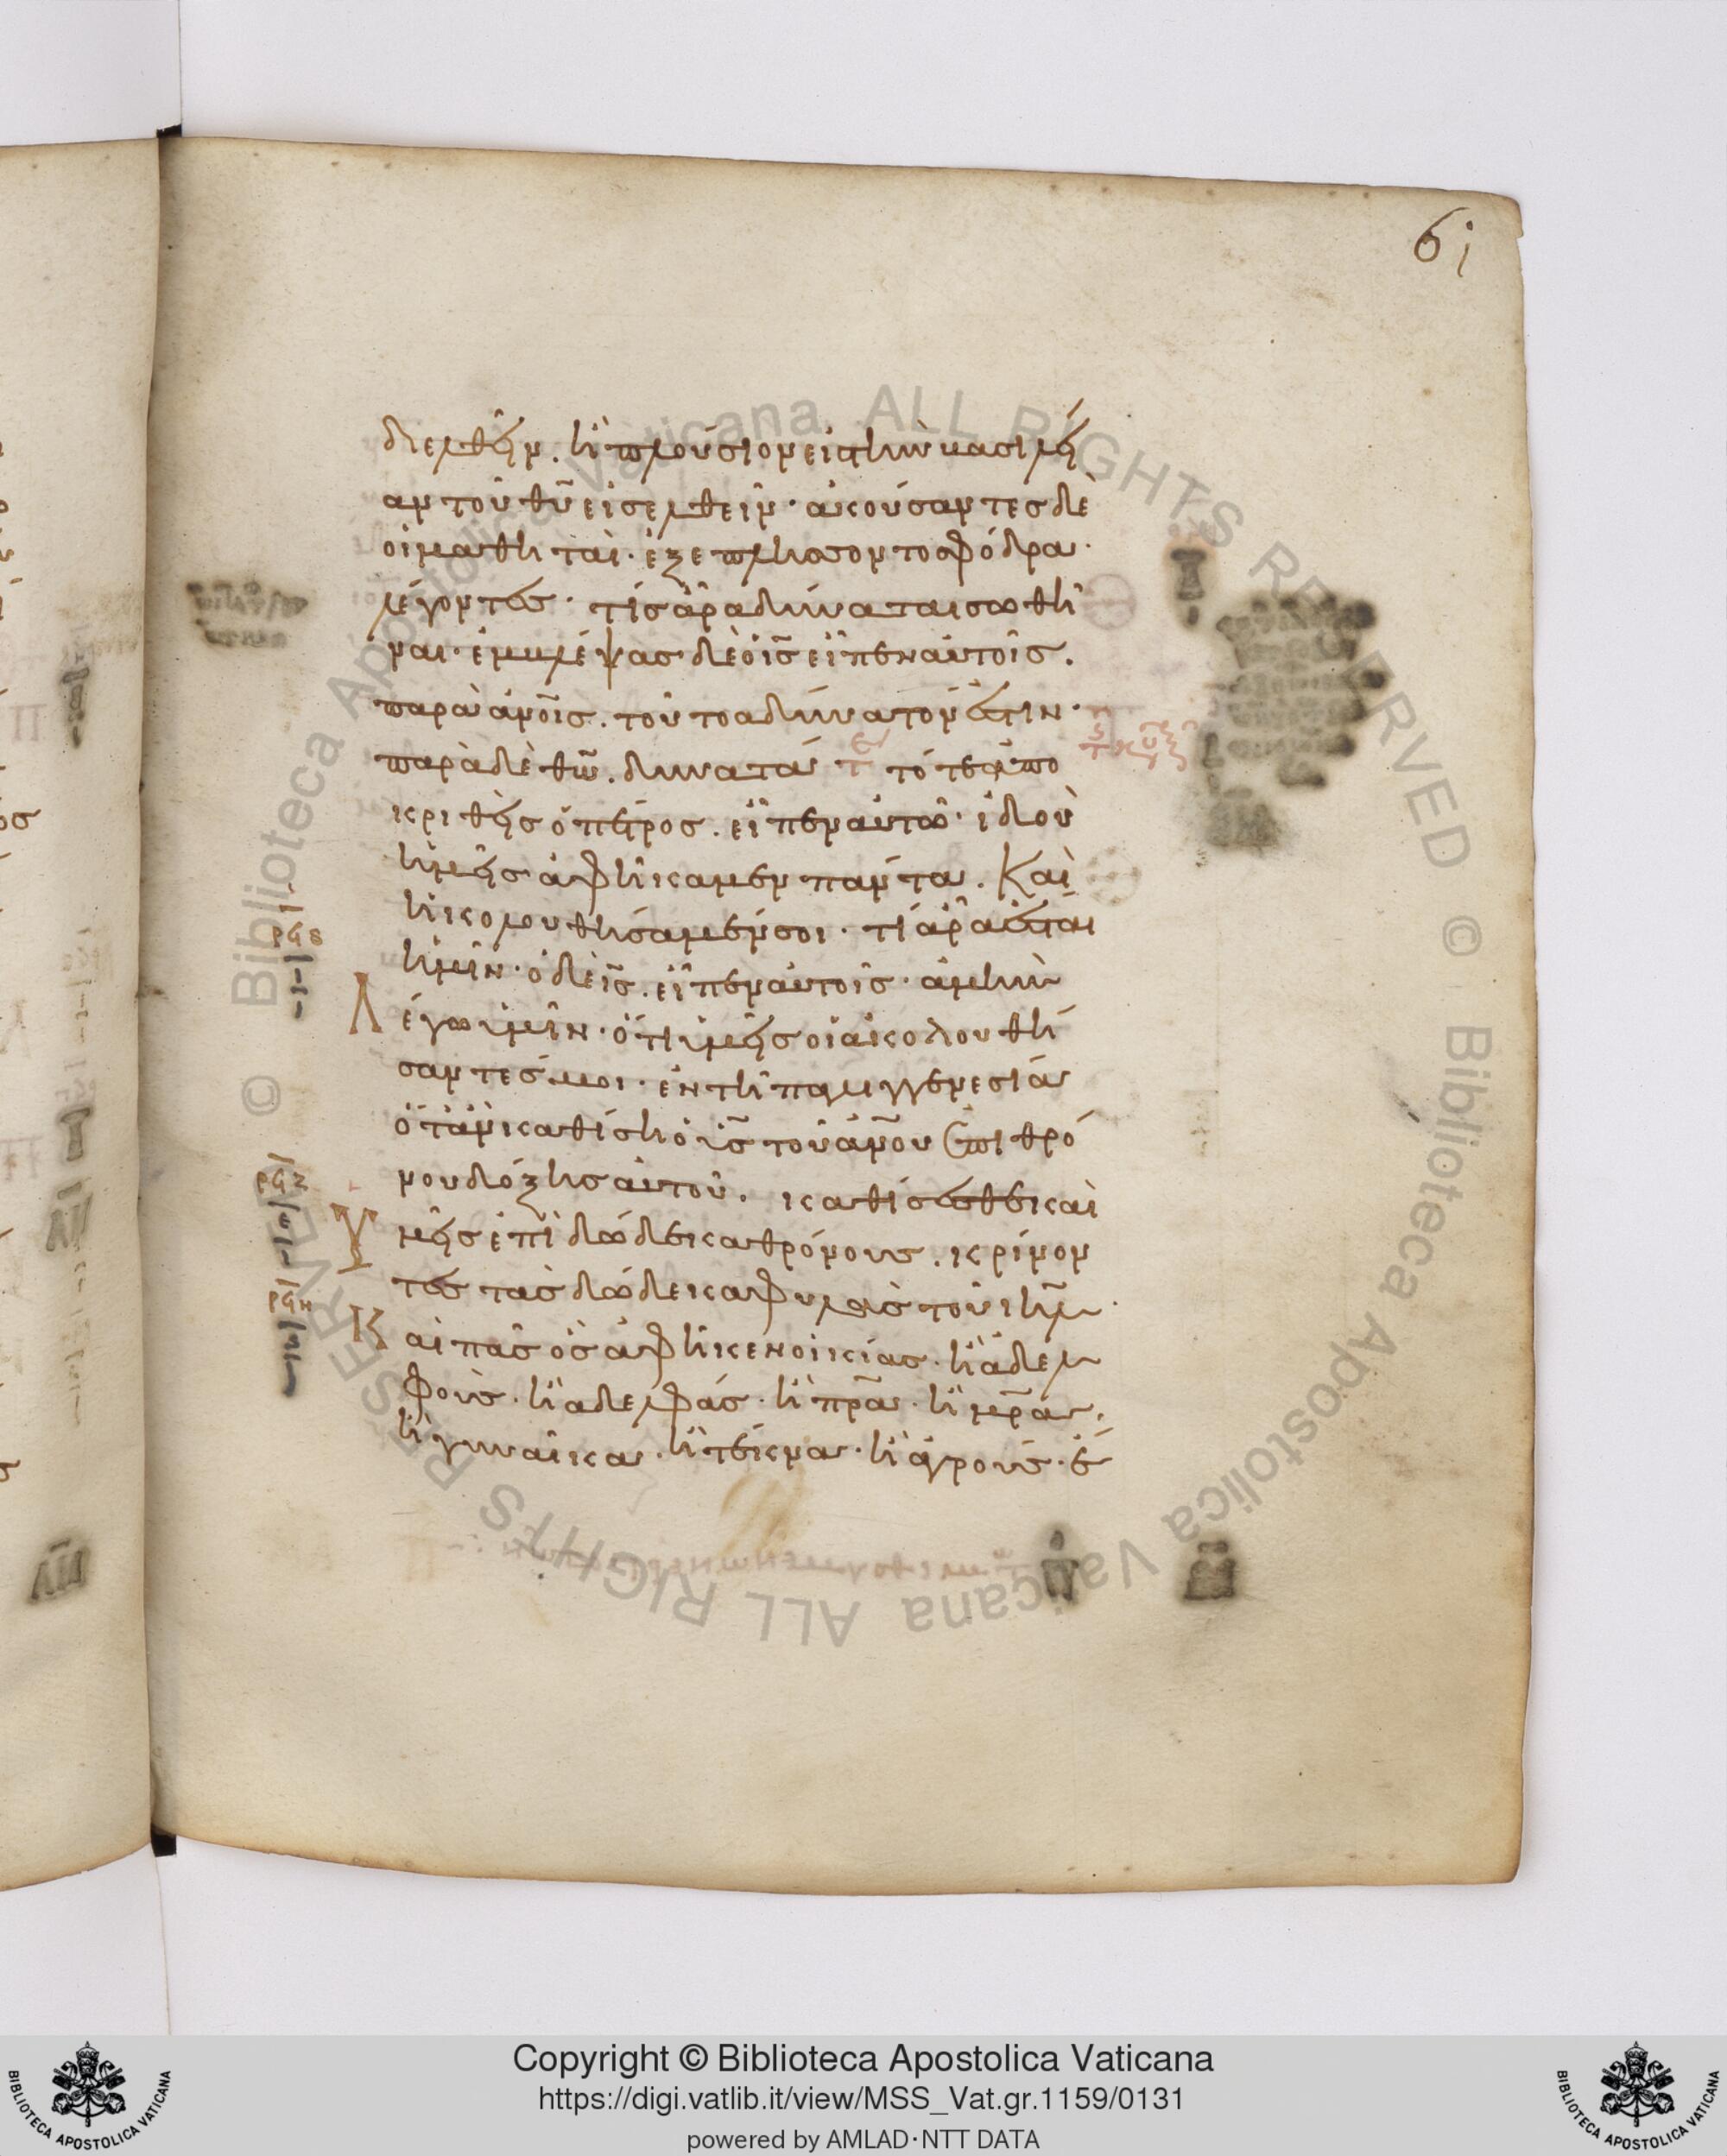 61
διελθεῖν. ἢ πλούσιον εἰς τὴν βασιλεί
αν τοῦ θ̅υ̅ εἰσελθεῖν· ἀκούσαντες δὲ
οἱ μαθηταὶ· ἐξεπλήσσοντο σφόδρα·
λέγοντες· τίς ἄρα δύναται σωθῆ
ναι· ἐμβλέψας δὲ ὁ ι̅ς̅ εἶπεν αὐτοῖς.
παρὰ ἀν̅ο̅ις. τοῦτο ἀδύνατόν ἐστιν·
παρὰ δὲ θ̅ω̅. δυνατά τότε ἀπο
κριθεὶς ὁ πέτρος. εἶπεν αὐτῶ· ἰδοὺ
ἡμεῖς ἀφήκαμεν πάντα. Καὶ
ἠκολουθήσαμέν σοι· τί ἄρα ἔσται
ἡμῖν· ὁ δὲ ι̅ς̅. εἶπεν αὐτοῖς· ἀμὴν
Λέγω ὑμῖν· ὅτι ὑμεῖς οἱ ἀκολουθή
σαντές μοι· ἐν τῆ παλιγγενεσία
ὅταν καθίση ὁ υ̅ς̅ τοῦ ἀν̅ο̅υ ἐπὶ θρό
νου δόξης αὐτοῦ. καθίσεσθε καὶ
Ὑμεῖς ἐπὶ δώδεκα θρόνους. κρίνον
τες τὰς δώδεκα φυλὰς τοῦ ι̅η̅λ̅·
Καὶ πᾶς ὃς ἀφῆκεν οἰκίας· ἢ ἀδελ
φοὺς· ἢ ἀδελφάς· ἢ π̅ρ̅α̅· ἢ μ̅ρ̅α̅.
ἢ γυναῖκα· ἢ τέκνα· ἢ ἀγρούς· ἕ
ρϟϛ
ρϟζ
ρϟη
Copyright © Biblioteca Apostolica Vaticana
https://digi.vatlib.it/view/MSS_Vat.gr.1159/0131
powered by AMLAD·NTT DATA
BIBLIOTECA APOSTOLICA VATICANA
BIBLIOTECA APOSTOLICA VATICANA
© Biblioteca Apostolica Vaticana ALL RIGHTS RESERVED
© Biblioteca Apostolica Vaticana ALL RIGHTS RESERVED